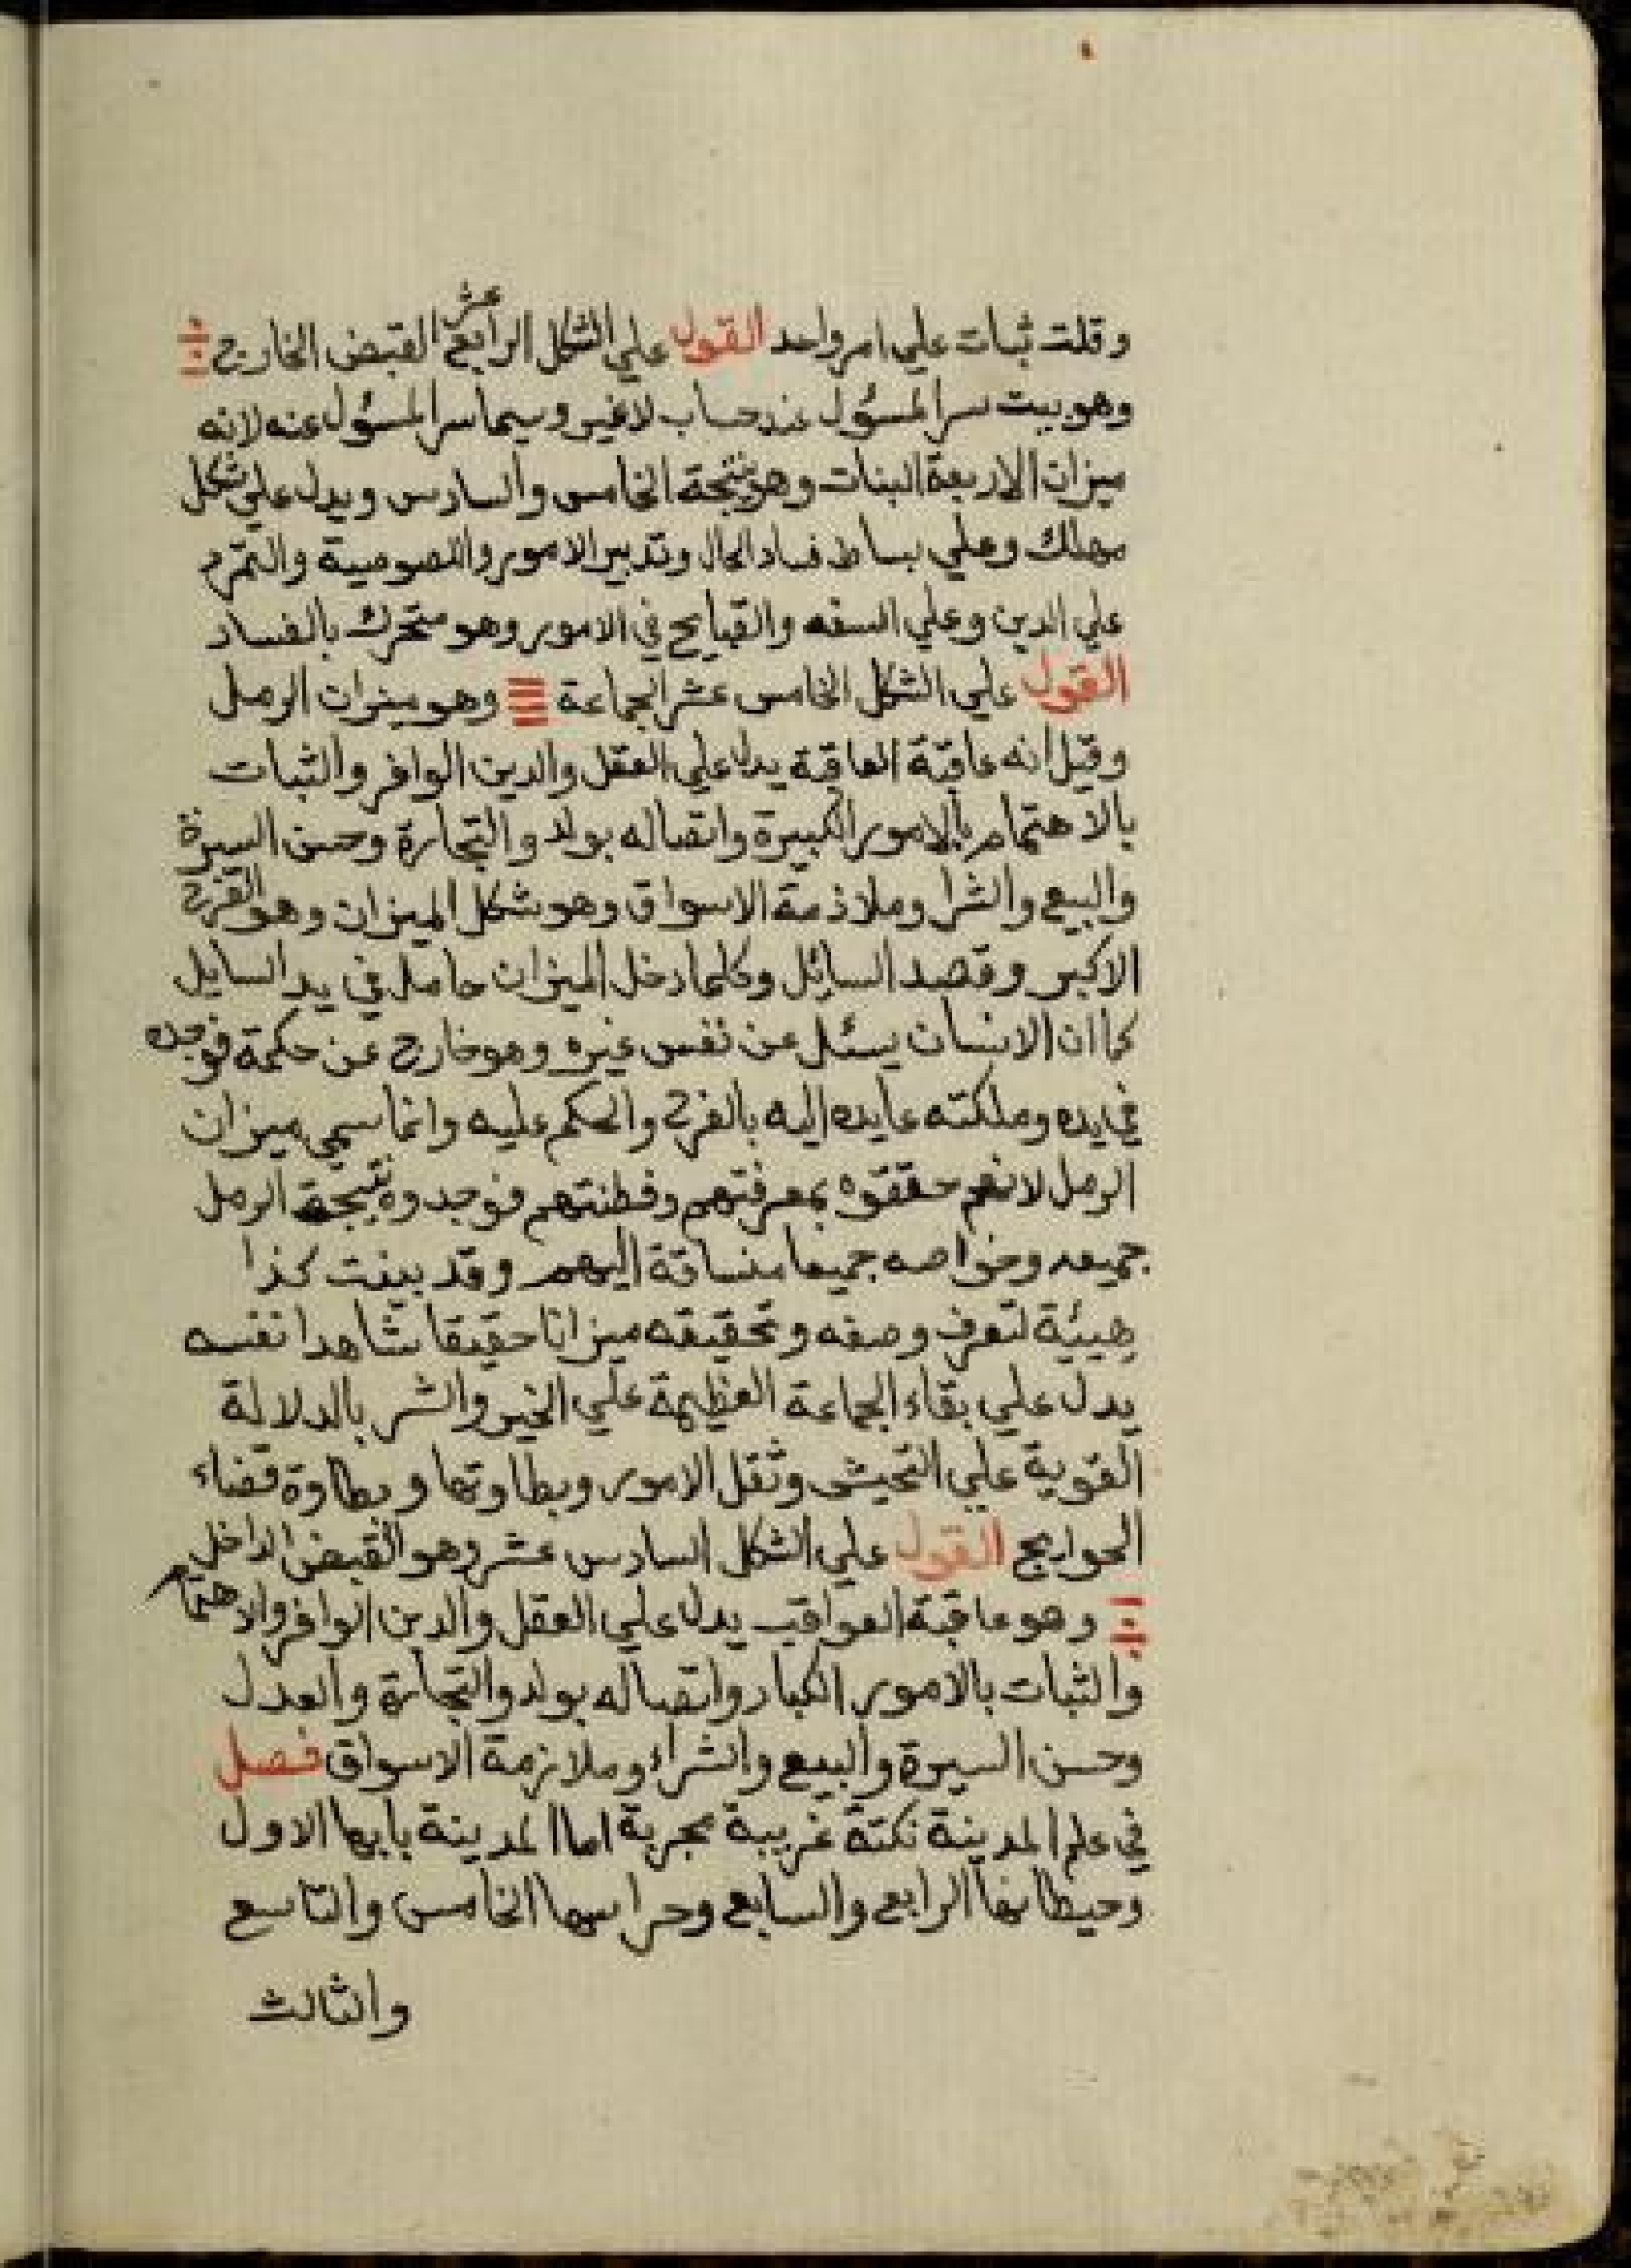 وقلت ثبات علي امر واحد القول علي الشكل الرابع عشر القبض الخارج
وهو بيت سر المسؤل عند حساب لاغير وسيما سر المسؤل عنه لانه
ميزان الاربعة البنات وهو نتيجة الخامس والسادس ويدل علي شكل
مهلك وعلي بساط فساد الحال وتدبير الامور واللصوصية والتمرم
علي الدين وعلي السفه والقبايح في الامور وهو متحرك بالفساد
القول علي الشكل الخامس عشر الجماعة وهو ميزان الرمل
وقيل انه عاقبة العاقبة يدل علي العقل والدين الوافر والثبات
بالاهتمام بالامور الكبيرة واتصاله بولد والتجارة وحسن السيرة
والبيع والشرا وملاذمة الاسواق وهو شكل الميزان وهو الفرح
الاكبر وقصد السائل وكلما دخل الميزان حامل في يد السايل
كما ان الانسان يسئل عن نفس غيره وهو خارج عن حكمة فوجده
في يده وملكته عايده اليه بالفرح والحكم عليه وانما سمي ميزان
الرمل لانهم حققوه بمعرفتهم وفطنتهم فوجدوه نتيجة الرمل
جميعه وخواصه جميعا منساقة اليهم وقد بينت كذا
هيئة لتعرف وصفه وتحقيقه ميزانا حقيقا شاهدا نفسه
يدل علي بقاء الجماعة العظيمة علي الخير والشر بالدلالة
القوية علي وثقل الامور وبطاوتها وبطاوة قضاء
الحوايج القول علي الشكل السادس عشر وهو القبض الداخل
وهو عاقبة العواقب يدل علي العقل والدين الوافر والاهتمام
والثبات بالامور الكبار واتصاله بولد والتجارة والعدل
وحسن السيرة والبيع والشراء وملازمة الاسواق فصل
في علم المدينة نكتة غريبة مجربة اما المدينة بابها الاول
وحيطانها الرابع والسابع وحراسها الخامس والتاسع
والثالث